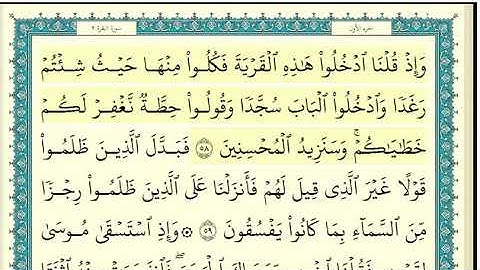 الجزء الأول
سورة البقرة ٢
وَإِذْ قُلْنَا ٱدْخُلُوا۟ هَٰذِهِ ٱلْقَرْيَةَ فَكُلُوا۟ مِنْهَا حَيْثُ شِئْتُمْ
رَغَدًا وَٱدْخُلُوا۟ ٱلْبَابَ سُجَّدًا وَقُولُوا۟ حِطَّةٌ نَّغْفِرْ لَكُمْ
خَطَٰيَٰكُمْ ۚ وَسَنَزِيدُ ٱلْمُحْسِنِينَ ٥٨ فَبَدَّلَ ٱلَّذِينَ ظَلَمُوا۟
قَوْلًا غَيْرَ ٱلَّذِى قِيلَ لَهُمْ فَأَنزَلْنَا عَلَى ٱلَّذِينَ ظَلَمُوا۟ رِجْزًا
مِّنَ ٱلسَّمَآءِ بِمَا كَانُوا۟ يَفْسُقُونَ ٥٩ ۞ وَإِذِ ٱسْتَسْقَىٰ مُوسَىٰ